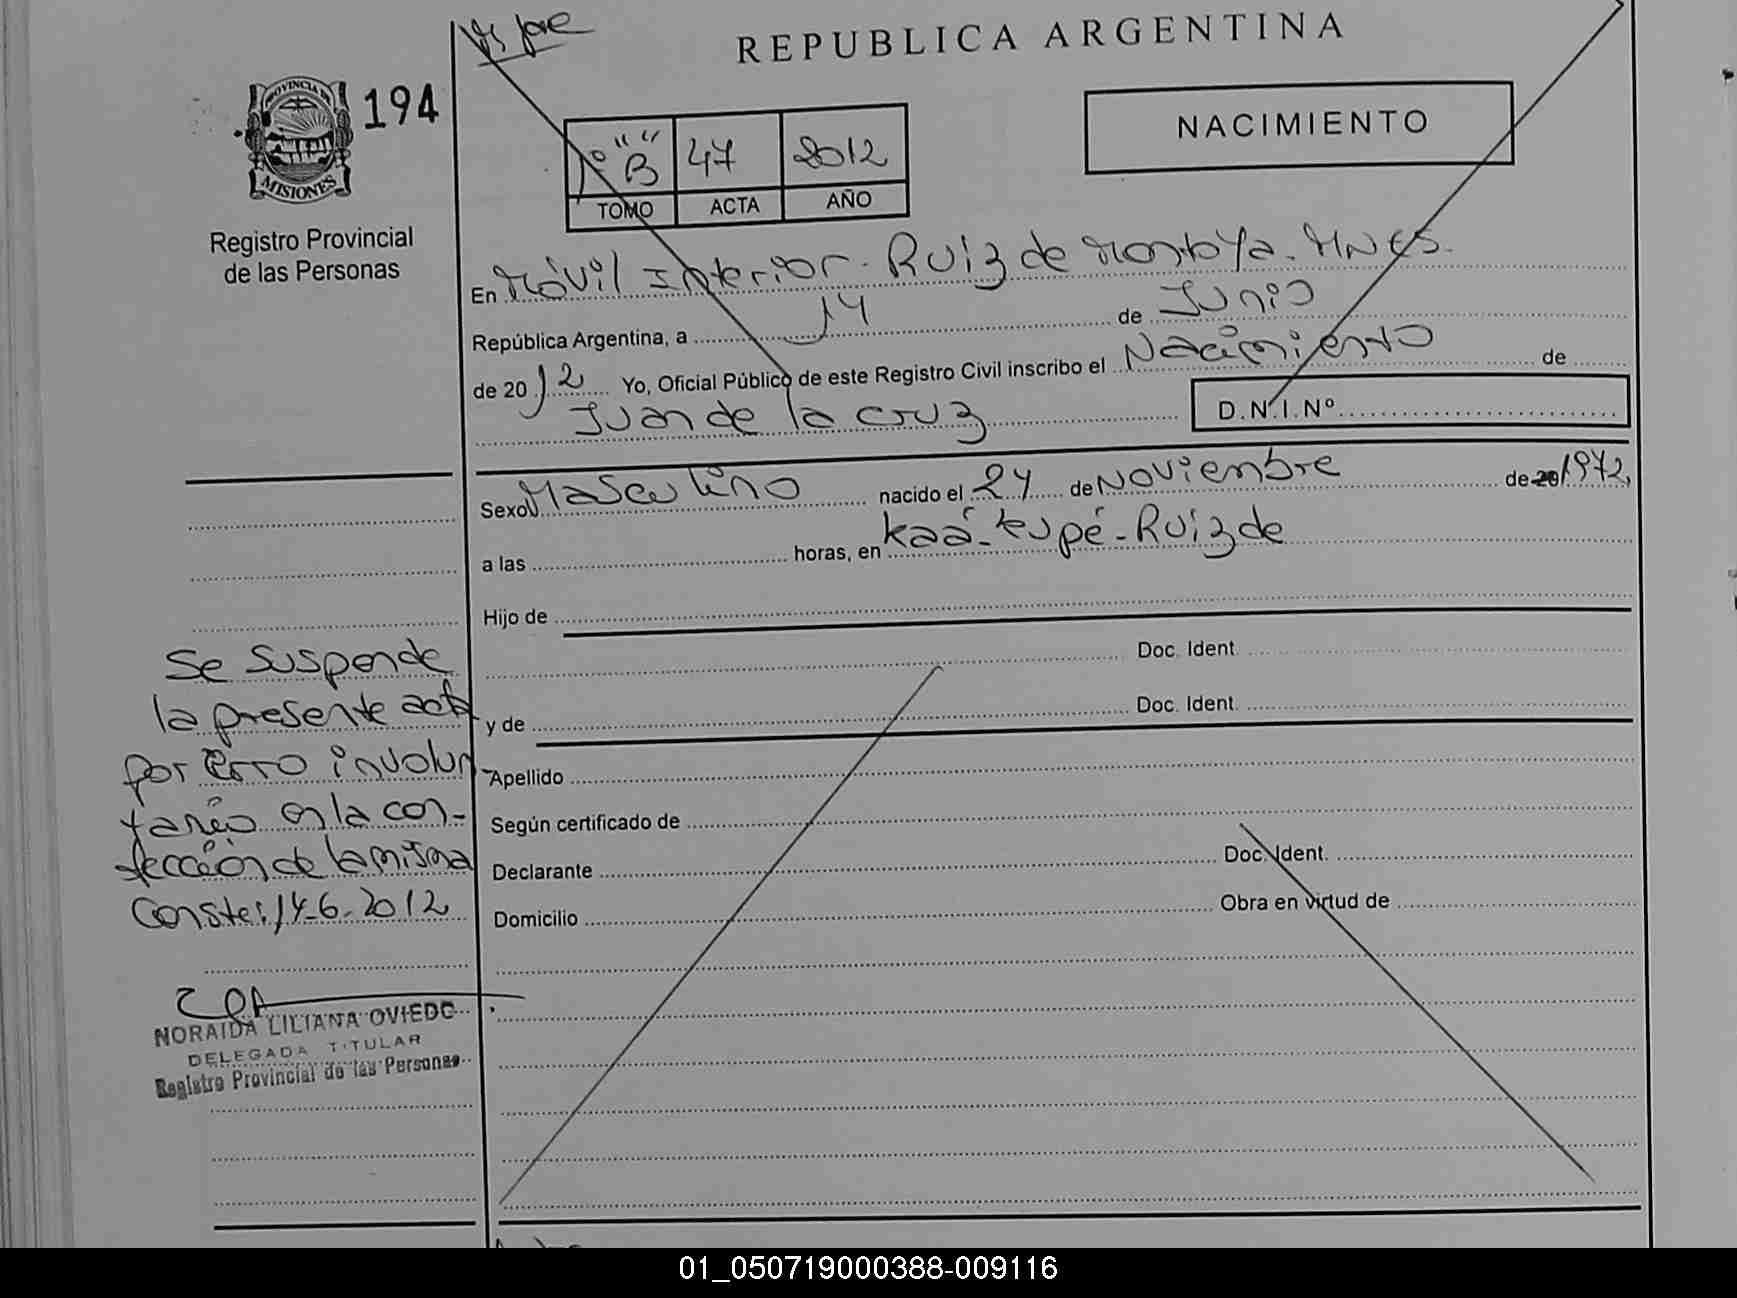 REPUBLICA ARGENTINA
PROVINCIA DE
MISIONES
194
Registro Provincial
de las Personas
NACIMIENTO
1º "B" 47 2012
TOMO ACTA AÑO
En Móvil Interior - Ruiz de Montoya - MNES.
República Argentina, a 14 de Junio
de 2012 Yo, Oficial Público de este Registro Civil inscribo el Nacimiento de
Juan de la cruz
D.N.I.Nº
Sexo Masculino nacido el 24 de Noviembre de 20 1972,
a las horas, en kaá-kupé-Ruiz de
Hijo de
Doc. Ident.
y de Doc. Ident.
Apellido
Según certificado de
Declarante Doc. Ident.
Domicilio Obra en virtud de
Se suspende
la presente acta
por erro involun
tario en la con-
fección de la misma
Conste: 14-6-2012
NORAIDA LILIANA OVIEDO
DELEGADA TITULAR
Registro Provincial de las Personas
01_050719000388-009116